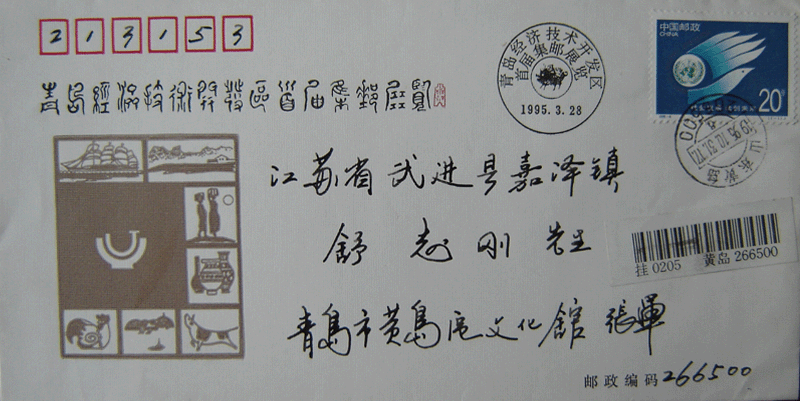 213153
青岛經济技術開發區首届集郵展覽
青岛经济技术开发区
首届集邮展览
1995.3.28
中国邮政
CHINA
20分
山东青岛
江苏省武进县嘉泽镇
舒志刚 先生
挂 0205 黄岛 266500
青島市黄島区文化館 張軍
邮政编码 266500